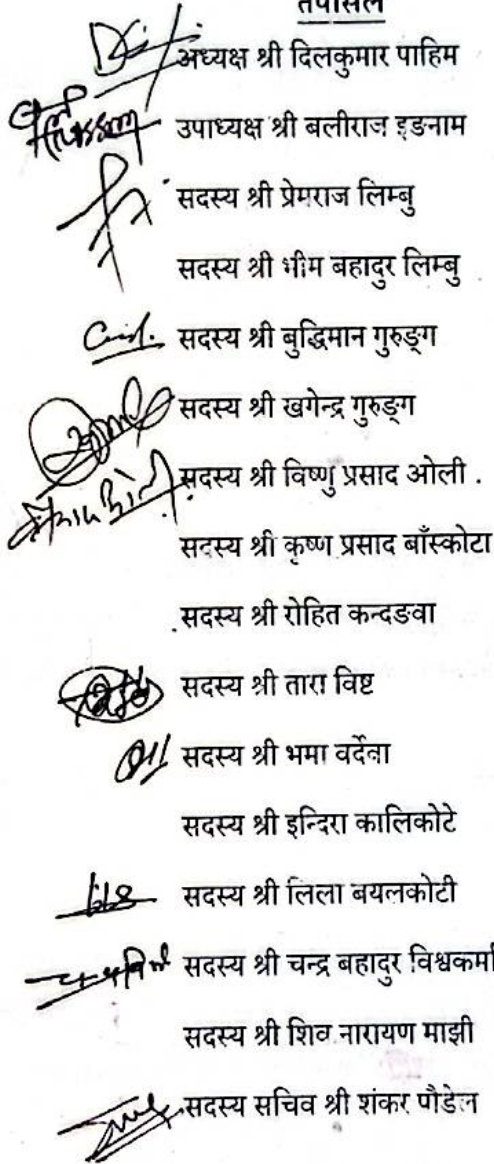 तपसिल
अध्यक्ष श्री दिलकुमार पाहिम
उपाध्यक्ष श्री बलीराज इङनाम
सदस्य श्री प्रेमराज लिम्बु
सदस्य श्री भीम बहादुर लिम्बु
सदस्य श्री बुद्धिमान गुरुङ्ग
सदस्य श्री खगेन्द्र गुरुङ्ग
सदस्य श्री विष्णु प्रसाद ओली .
सदस्य श्री कृष्ण प्रसाद बाँस्कोटा
सदस्य श्री रोहित कन्दङवा
सदस्य श्री तारा विष्ट
सदस्य श्री भमा वर्देवा
सदस्य श्री इन्दिरा कालिकोटे
सदस्य श्री लिला बयलकोटी
सदस्य श्री चन्द्र बहादुर विश्वकर्मा
सदस्य श्री शिव नारायण माझी
सदस्य सचिव श्री शंकर पौडेल